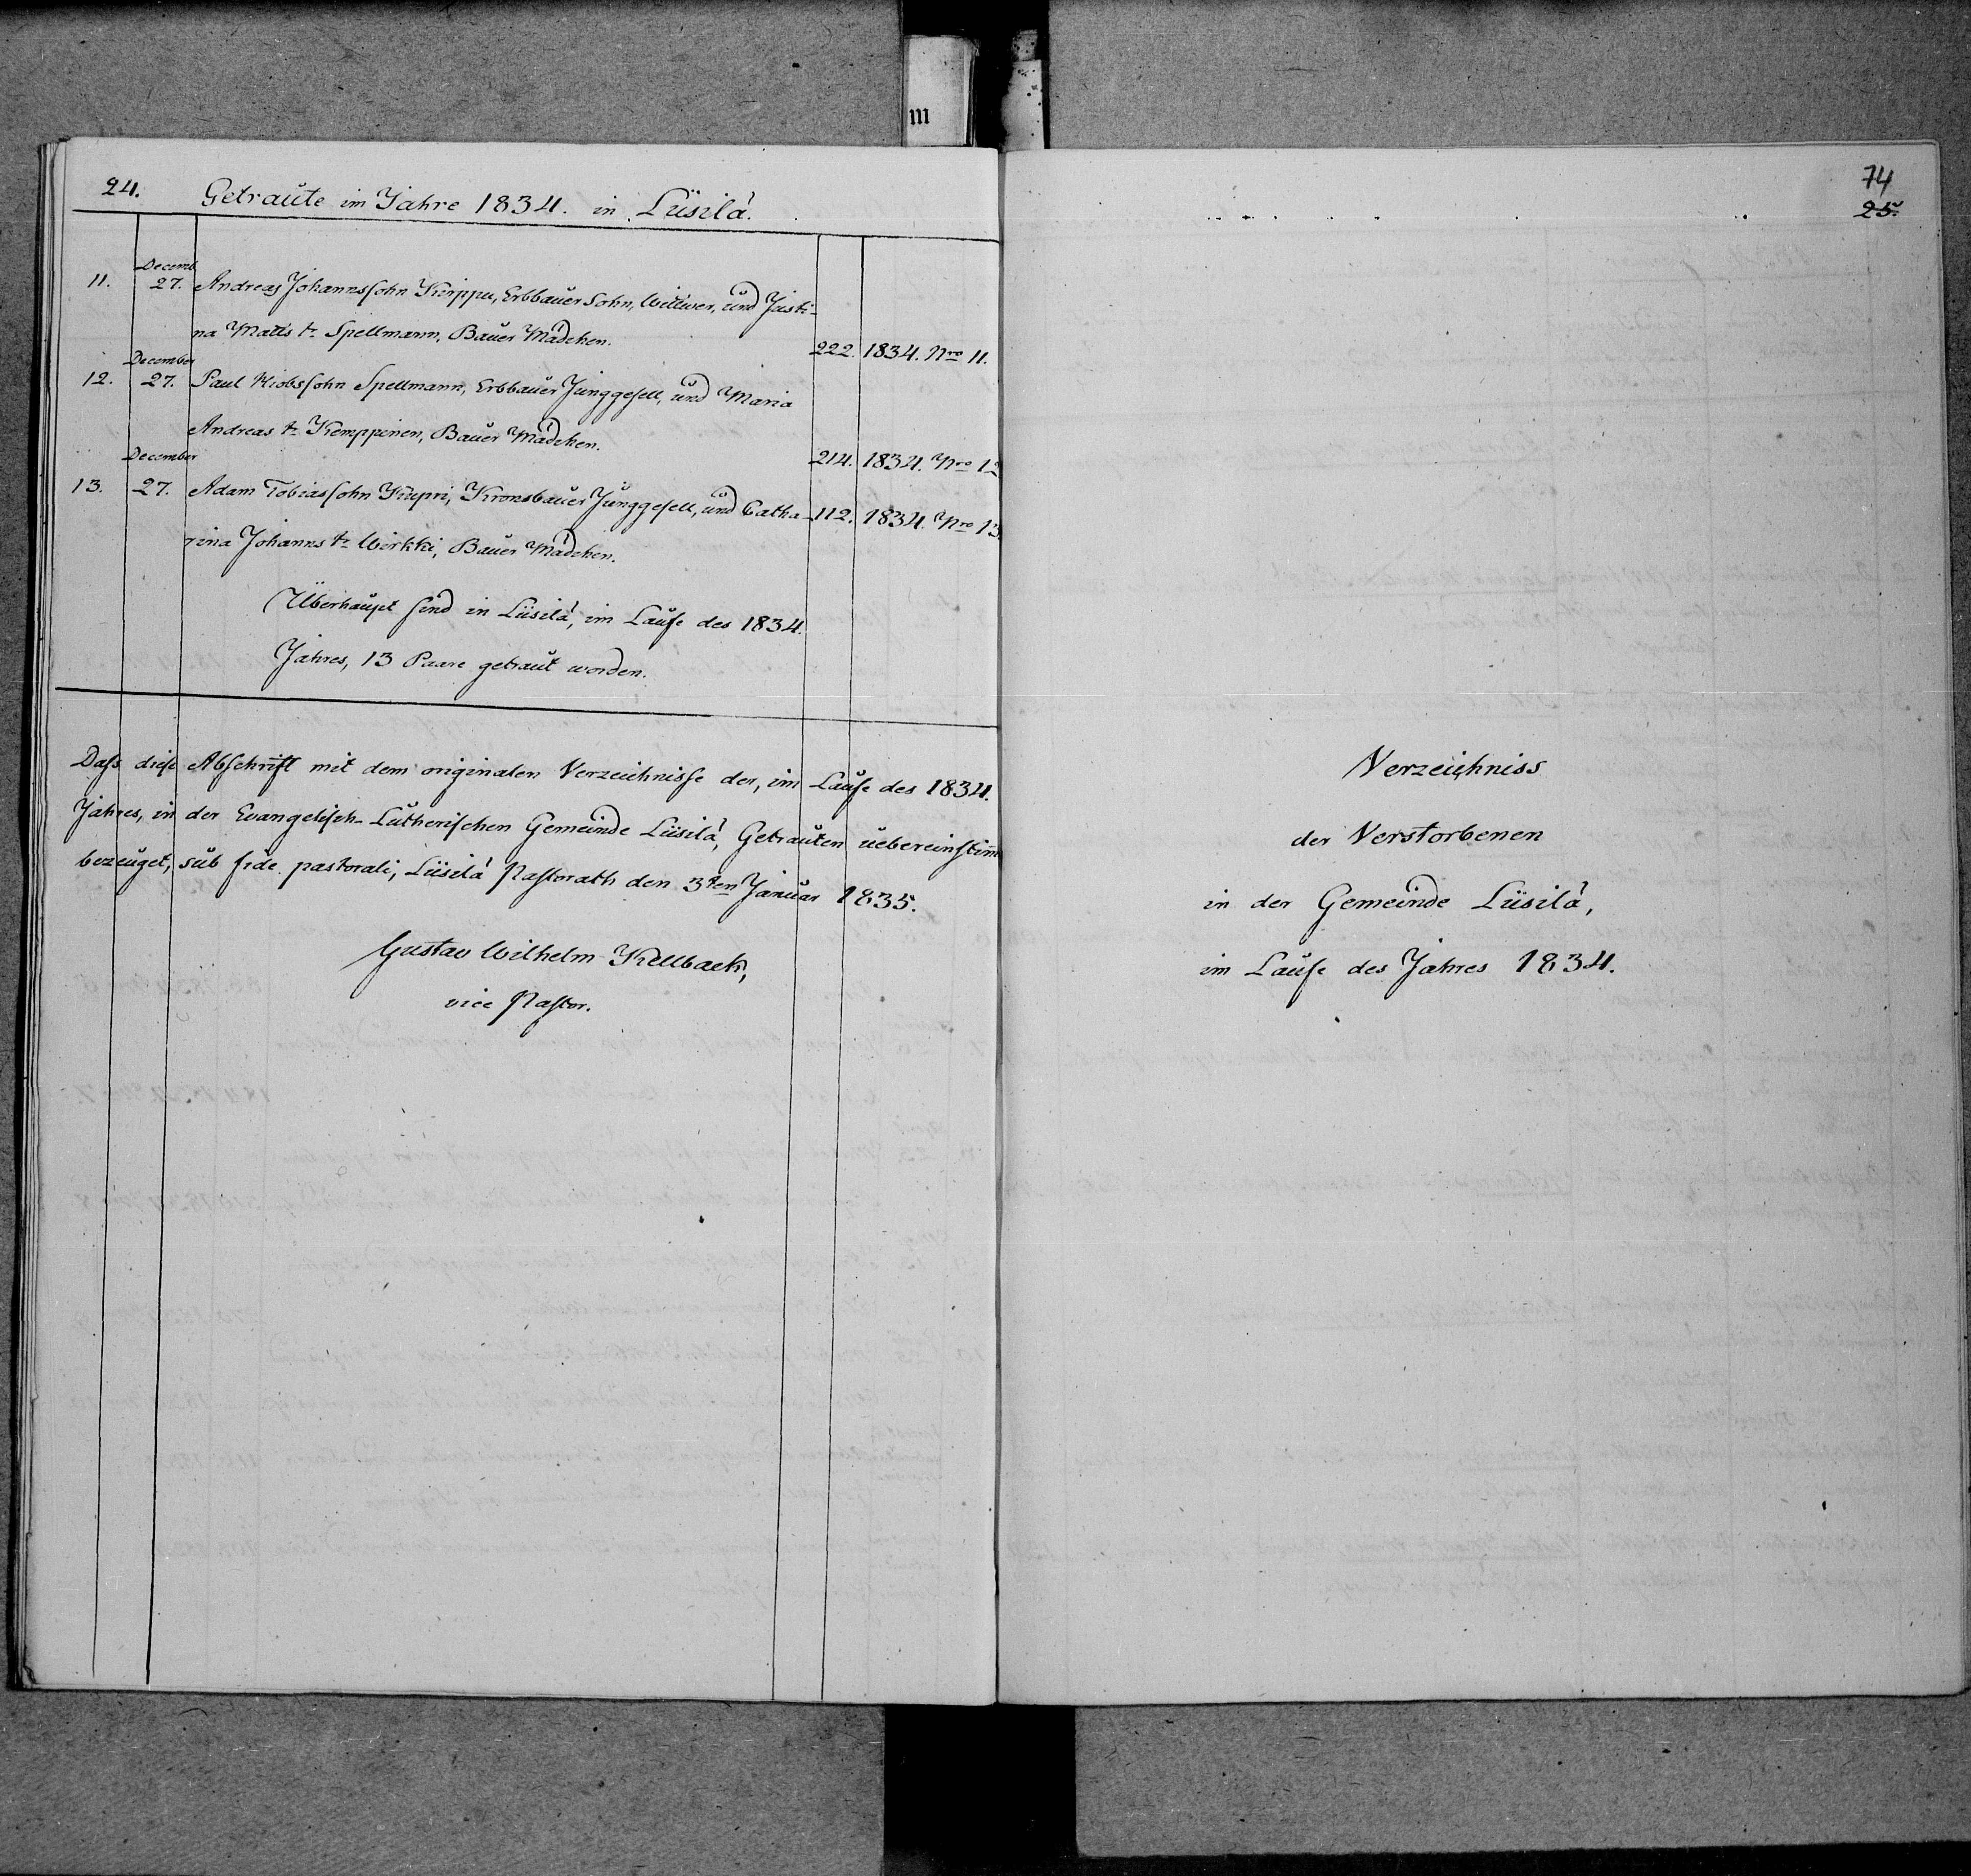 m
24. Getraute im Jahre 1834. in Lüsilä.
Decemb
11. 27. Andreas Johannssohn Kirppu, Erbbauer Sohn, Wittwer, und Justi-
na Matts tr. Spellmann, Bauer Mädchen. 222. 1834. Nro 11.
December
12. 27. Paul Hiobssohn Spellmann, Erbbauer Junggesell, und Maria
Andreas tr. Kemppinen, Bauer Mädchen. 214. 1834. Nro 12
December
13. 27. Adam Tobiassohn Kupri, Kronsbauer Junggesell, und Catha- 112. 1834. Nro 13.
rina Johanns tr. Wirkki, Bauer Mädchen.
Überhaupt sind in Lüsilä, im Laufe des 1834.
Jahres, 13 Paare getraut worden.
Dass diese Abschrift mit dem originalen Verzeichnisse der, im Laufe des 1834.
Jahres, in der Evangelisch-Lutherischen Gemeinde Lüsilä, Getrauten uebereinstim
bezeuget, sub fide pastorali, Lüsilä Pastorath den 3ten Januar 1835.
Gustav Wilhelm Kellback,
vice Pastor.
74
25.
Verzeichniss
der Verstorbenen
in der Gemeinde Lüsilä,
im Laufe des Jahres 1834.